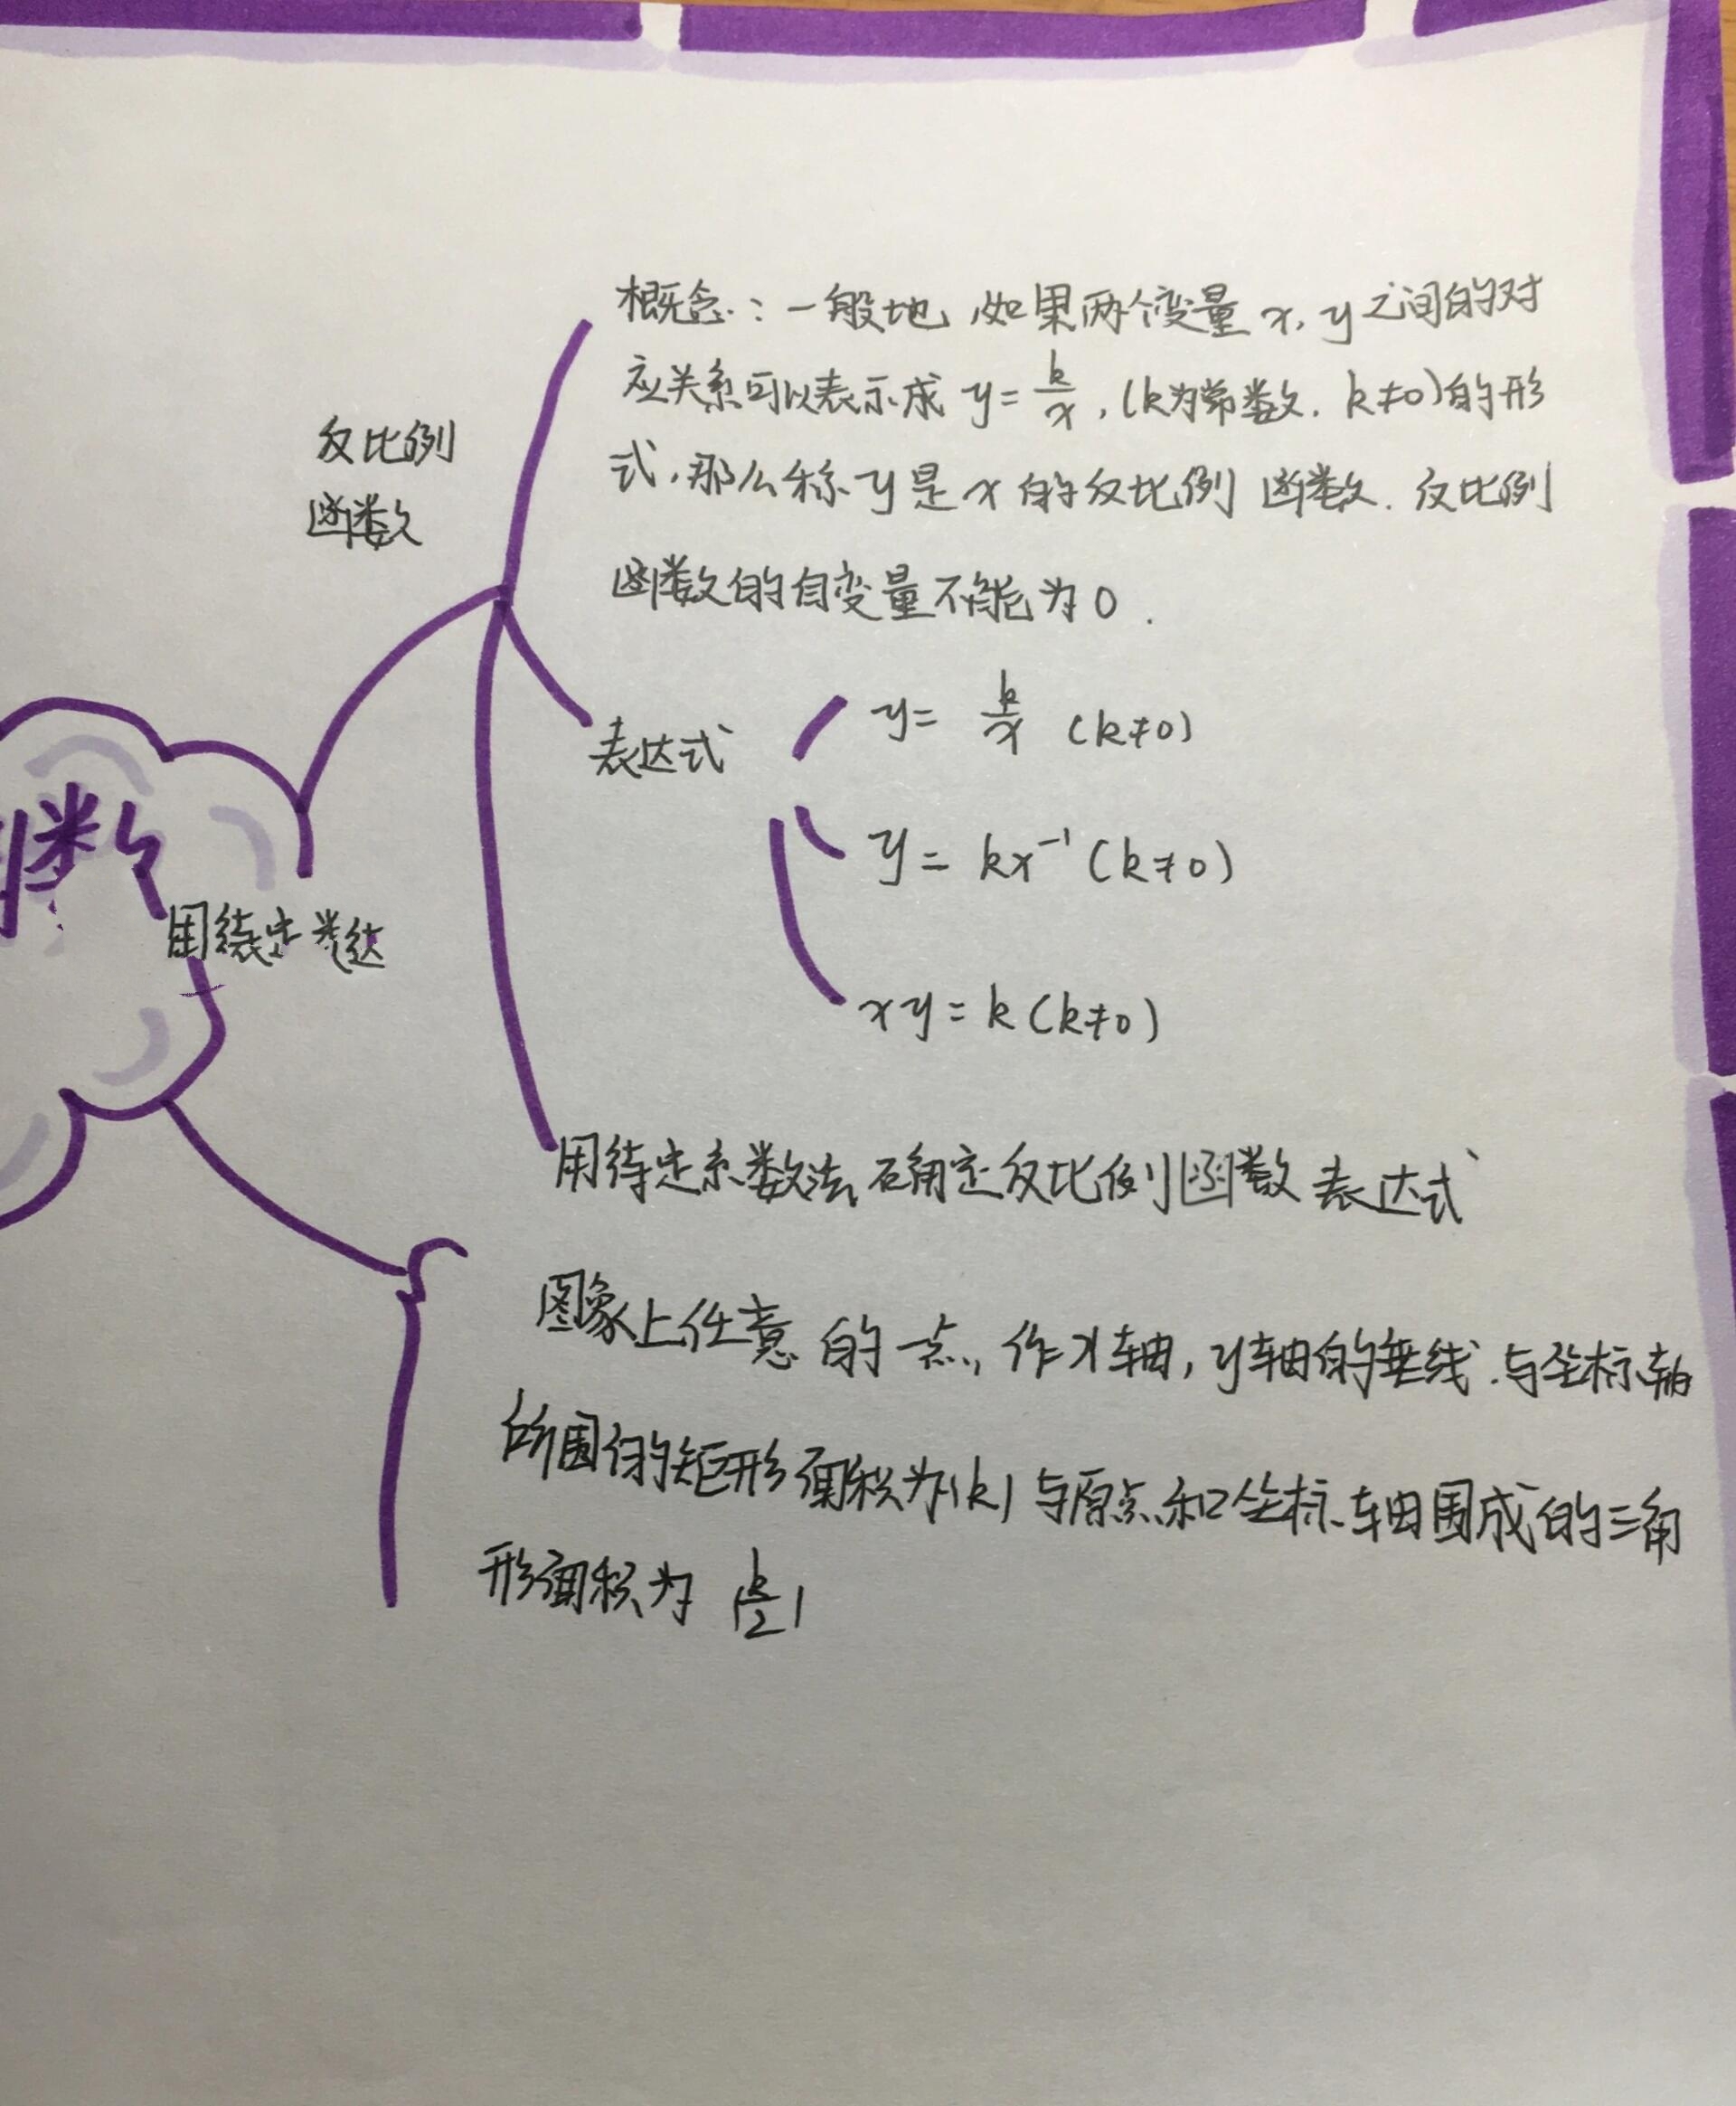 概念：一般地，如果两个变量 x, y 之间的对
应关系可以表示成 y = k/x，(k为常数，k≠0)的形
式，那么称 y 是 x 的反比例函数．反比例
函数的自变量不能为0．
反比例
函数
表达式
y = k/x (k≠0)
y = kx⁻¹ (k≠0)
xy = k (k≠0)
数
用待定
用待定系数法，确定反比例函数表达式
图象上任意的一点，作x轴，y轴的垂线．与坐标轴
所围的矩形面积为|k| 与原点和坐标轴围成的三角
形面积为 |k/2|